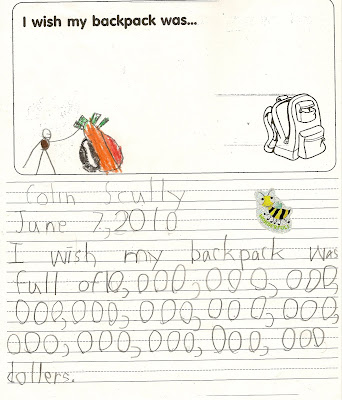 I wish my backpack was...
Colin Scully
June 7, 2010
I wish my backpack was
full of 10,000,000,000,
000,000,000,000,000,
000,000,000,000,000
dollers.